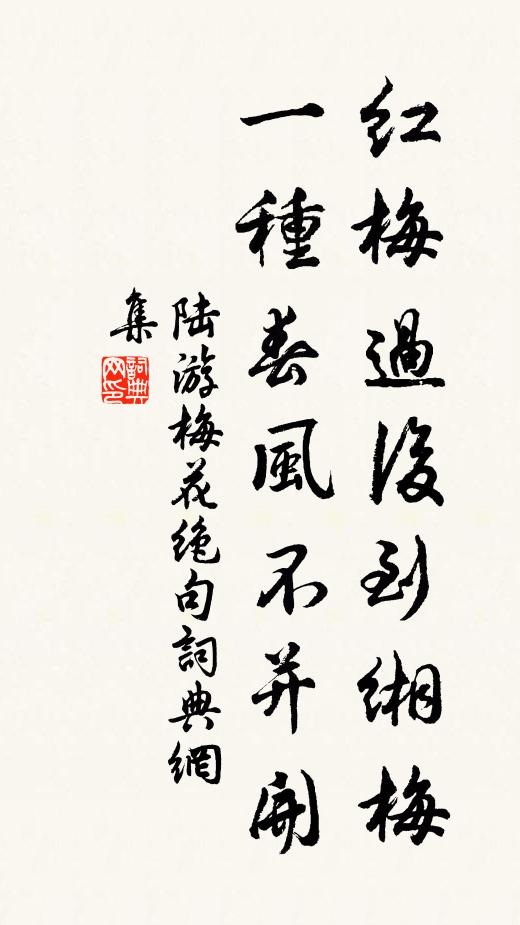 紅梅過後到緗梅
一種春風不并開
陸游梅花绝句詞典網
集
詞典
网印